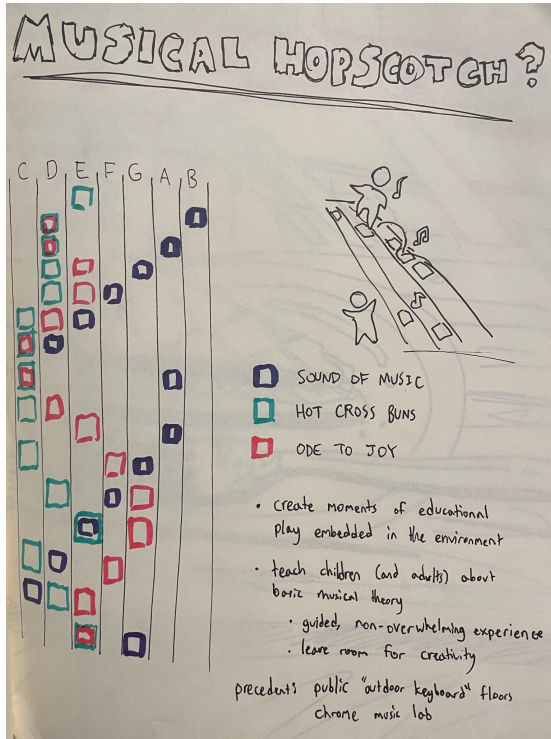 MUSICAL HOPSCOTCH?
C D E F G A B
SOUND OF MUSIC
HOT CROSS BUNS
ODE TO JOY
• create moments of educational
play embedded in the environment
• teach children (and adults) about
basic musical theory
• guided, non-overwhelming experience
• leave room for creativity
precedents public "outdoor keyboard" floors
chrome music lab